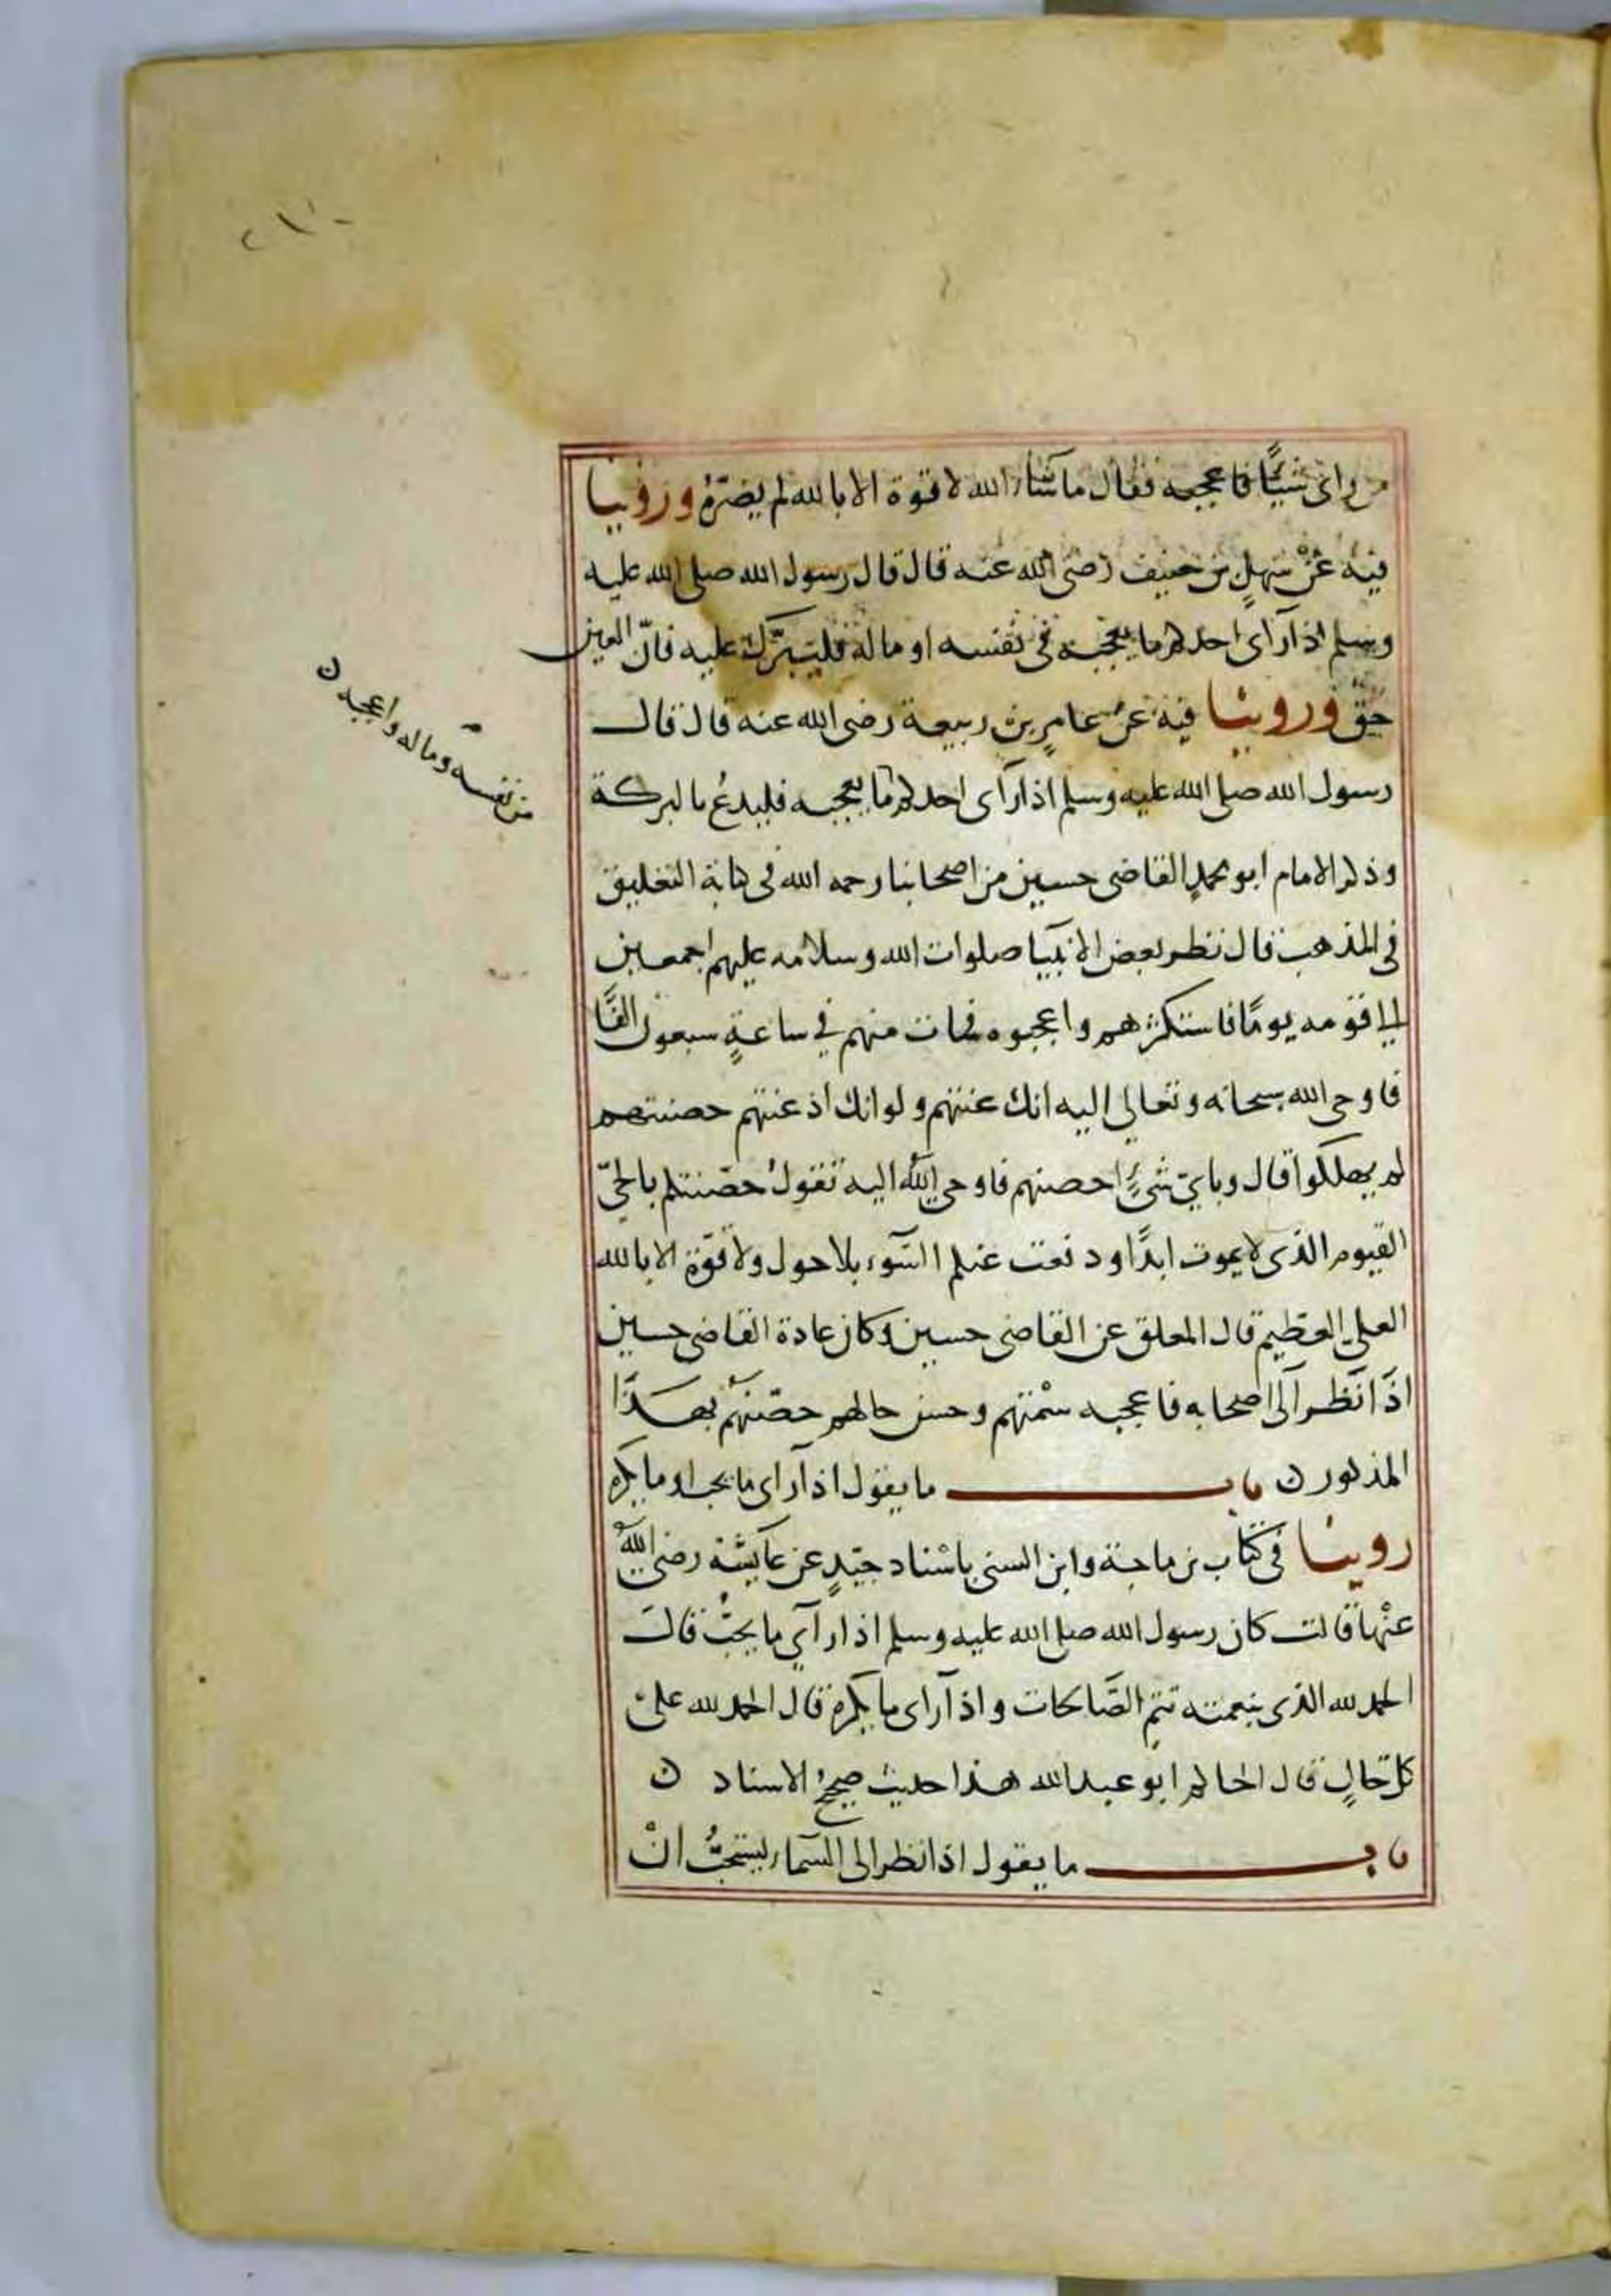 من راى شيًا فاعجبه فقال ماشاء الله لا قوة الا بالله لم يضرّهُ وروينا
فيه عن سهلٍ بن حنيف رضى الله عنه قال قال رسول الله صلى الله عليه
وسلم اذا رآى احدكم ما يعجبه في نفسه او ماله فليبرّك عليه فانّ العين
حق وروينا فيه عن عامرٍ بن ربيعة رضى الله عنه قال قال
رسول الله صلى الله عليه وسلم اذا رآى احدكم ما يعجبه فليدعُ بالبركة
من نفسه وماله واعجبه ن
وذكر الامام ابو محمدٍ القاضى حسين من اصحابنا رحمه الله في كتابه التعليق
في المذهب قال نظر بعض الانبيا صلوات الله وسلامه عليهم اجمعين
الي قومه يومًا فاستكثرهم واعجبوه فمات منهم في ساعةٍ سبعون الفًا
فاوحى الله سبحانه وتعالى اليه انك عنتهم ولو انك اذ عنتهم حصنتهم
لم يهلكوا قال وباي شيءٍ احصنهم فاوحى اللهُ اليه تقولُ حصّنتكم بالحيّ
القيوم الذى لا يموت ابدًا ودفعت عنكم السّوء بلا حول ولا قوّة الا بالله
العلي العظيم قال المعلق عن القاضى حسين وكان عادة القاضى حسين
اذا نظر الى اصحابه فاعجبه سمْتهم وحسن حالهم حصّنهم بهذا
المذكور ن باب ما يقول اذا رآى ما يحب او ما يكره
روينا في كتاب بن ماجة وابن السنى باسْناد جيّدٍ عن عايشة رضى اللهُ
عنْها قالت كان رسول الله صلى الله عليه وسلم اذا رآى ما يحبُّ قال
الحمد لله الذى بنعمته تتم الصّالحات واذا رآى ما يكره قال الحمد لله على
كل حالٍ قال الحاكم ابو عبد الله هذا حديث صحيحُ الاسناد ن
باب ما يقول اذا نظر الى السّماء يستحبُّ انْ